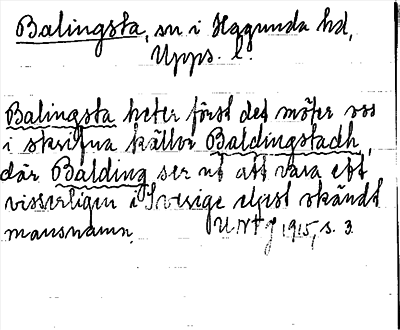 Balingsta, sn i Hagunda hd,
Upps. l.
Balingsta heter först det möter oss
i skrifna källor Baldingstadh,
där Balding ser ut att vara ett
visserligen i Sverige eljest okändt
mansnamn.
UNT 1915, s. 3.